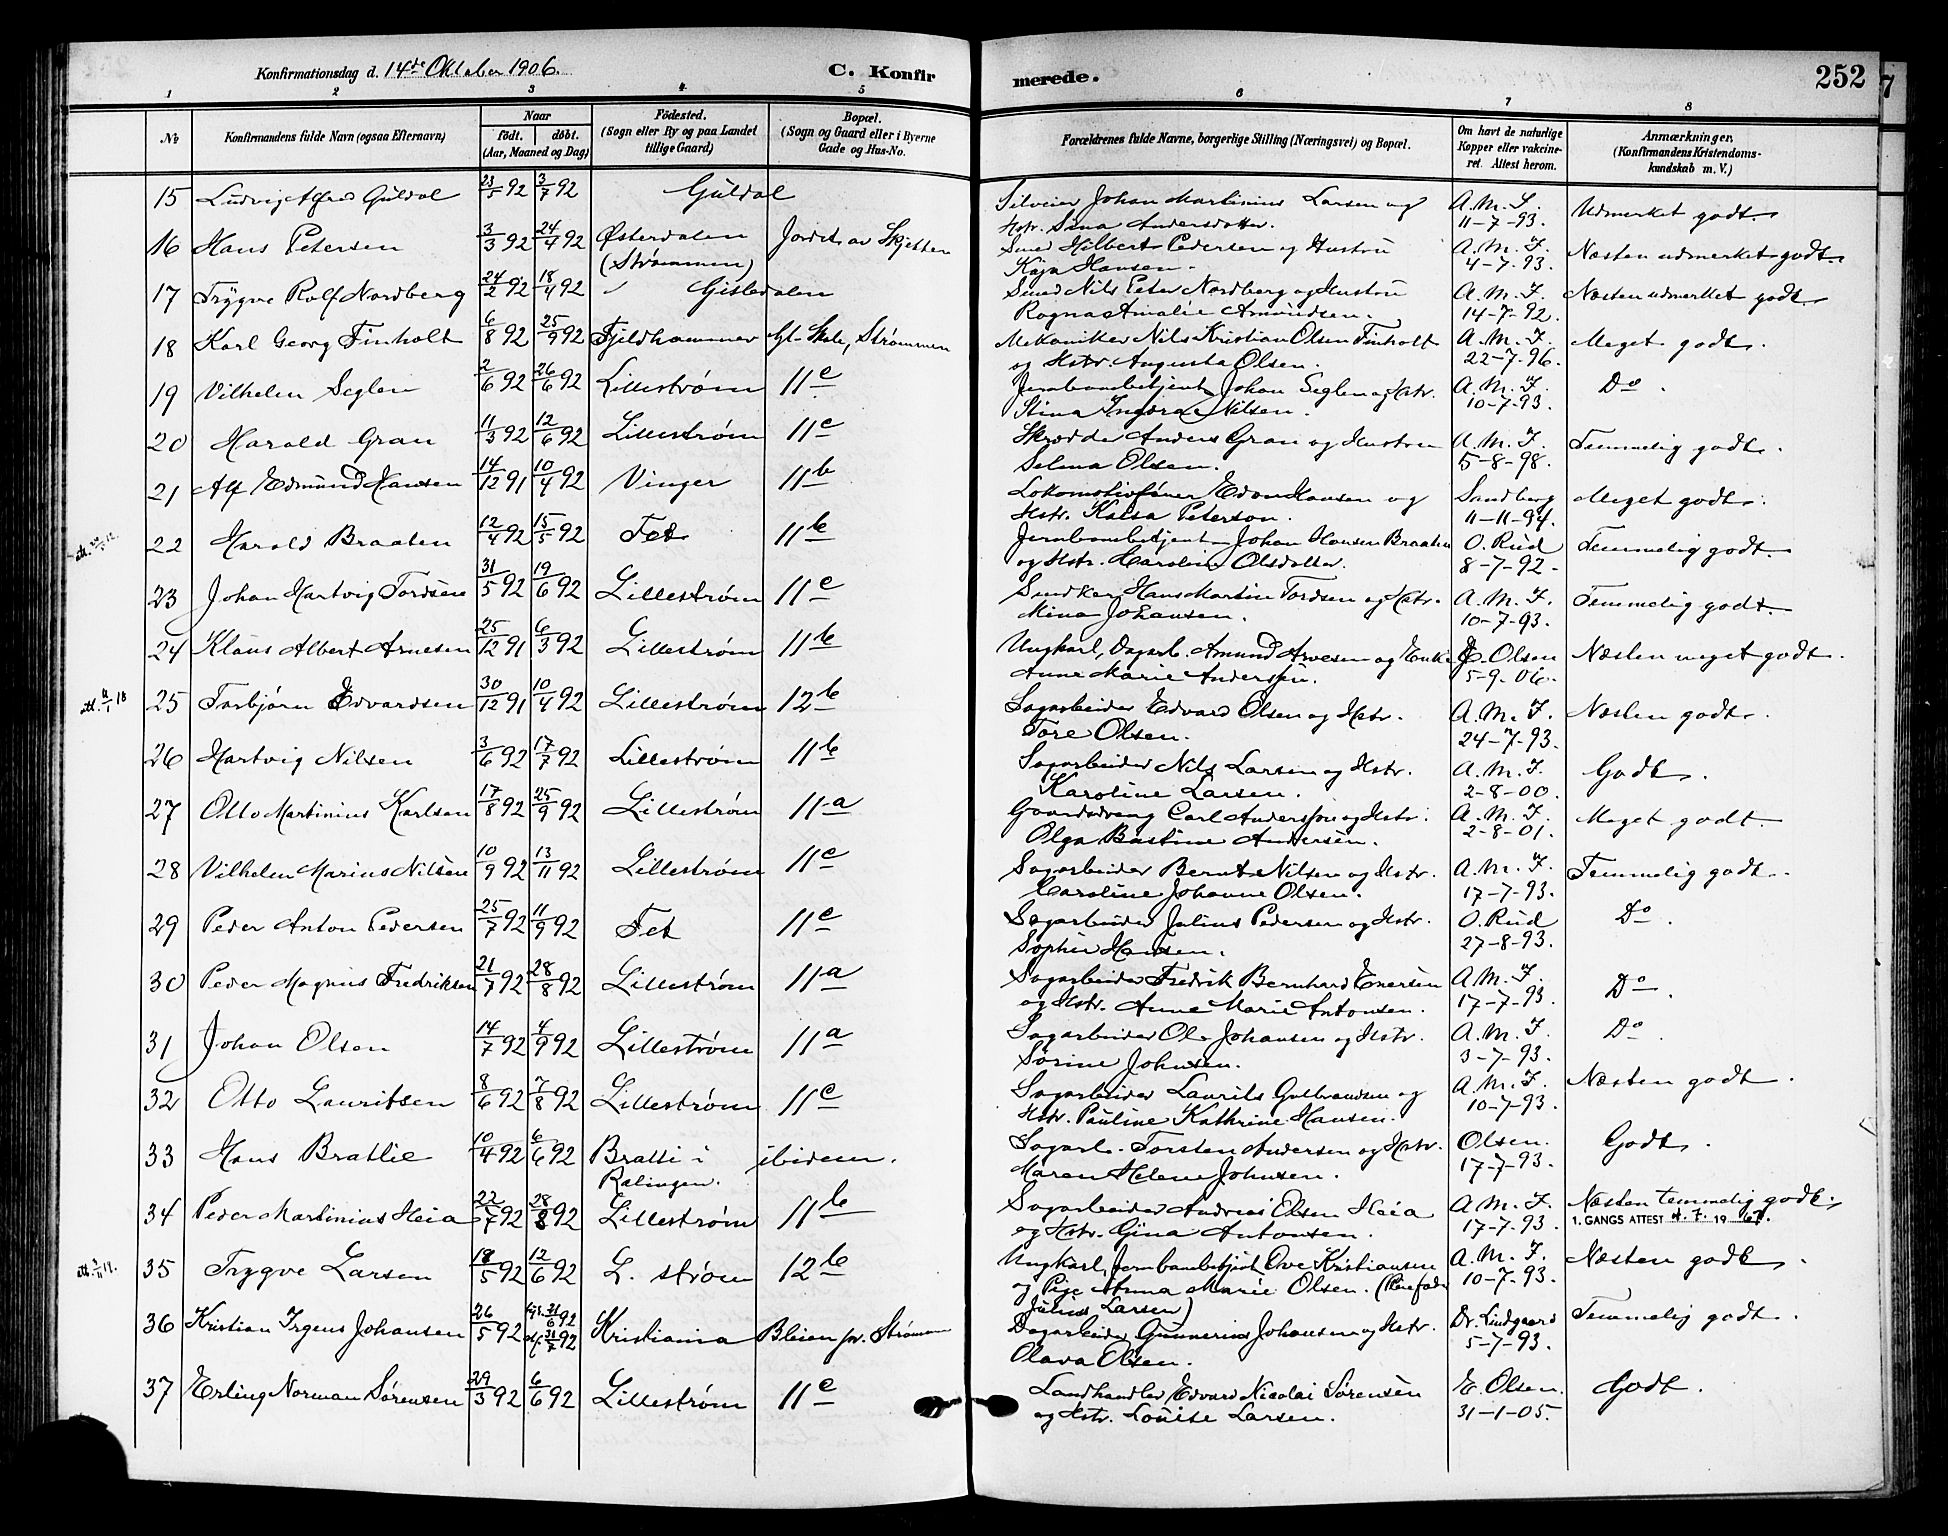 Konfirmationsdag d. 14de Oktober 1906.
C. Konfir
merede.
252
1 2 3 4 5 6 7 8
No
Konfirmandens fulde Navn (ogsaa Efternavn)
Naar
født. døbt.
(Aar, Maaned og Dag)
Fødested.
(Sogn eller By og paa Landet
tillige Gaard)
Bopæl.
(Sogn og Gaard eller i Byerne
Gade og Hus-No.
Forældrenes fulde Navne, borgerlige Stilling (Næringsvei) og Bopæl.
Om havt de naturlige
Kopper eller vakcine-
ret. Attest herom.
Anmærkninger.
(Konfirmandens Kristendoms-
kundskab m. V.)
15 Ludvig Alfred Guldal 23/5 92 3/7 92 Guldal Johan Martinius Larsen og A.M.F. Udmerket godt.
Hstr. Sina Andersdatter. 11-7-93.
16 Hans Petersen 3/3 92 24/4 92 Østerdalen Jordet av Skjetten Smed Hilbert Pedersen og Hustru A.M.F. Næsten udmerket godt.
(Strømmen) Kaja Hansen. 4-7-93.
17 Trygve Rolf Nordberg 24/2 92 18/4 92 " Gisledalen Smed Nils Peter Nordberg og Hustru A.M.F. Næsten udmerket godt
Ragna Amalie Amundsen. 14-7-92.
18 Karl Georg Finholt 6/8 92 25/9 92 Fjeldhammer Gl. Skole, Strømmen Mekaniker Nils Kristian Olsen Finholt A.M.F. Meget godt.
og Hstr. Augusta Olsen. 22-7-96.
19 Vilhelm Seglen 2/6 92 26/6 92 Lillestrøm 11c Jernbanebetjent Johan Seglen og Hstr. A.M.F. Do.
Stina Nilsen. 10-7-93.
20 Harald Gran 11/3 92 12/6 92 Lillestrøm 11c Skrædder Anders Gran og Hustru A.M.F. Temmelig godt.
Selma Olsen. 5-8-98.
21 Alf Edmund Hansen 14/12 91 10/4 92 Vinger 11b Lokomotivfører Hansen og Sandberg Meget godt.
Hstr. Kaisa Peterson. 11-11-94.
att. 22 Harald Braaten 12/4 92 15/5 92 Fet 11b Jernbanebetjent Johan Hansen Braaten O. Rud Temmelig godt.
og Hstr. Karoline Olsdatter. 8-7-92-
23 Johan Hartvig Tordsen 31/5 92 19/6 92 Lillestrøm 11c Hans Martin Tordsen og Hstr. A.M.F. Temmelig godt.
Mina Johansen. 10-7-93.
24 Klaus Albert Arnesen 25/12 91 6/3 92 Lillestrøm 11b Ungkarl, Dagarb. Amund Arnesen og Enke E. Olsen Næsten meget godt.
Anne Marie Andersen. 5-9-06.
att. 25 Torbjørn Edvardsen 30/12 91 10/4 92 Lillestrøm 12b Sagarbeider Edvard Olsen og Hstr. A.M.F. Næsten godt.
Tore Olsen. 24-7-93.
26 Hartvig Nilsen 3/6 92 17/7 92 Lillestrøm 11b Sagarbeider Nils Larsen og Hstr. A.M.F. Godt.
Karoline Larsen. 2-8-00.
27 Otto Martinius Karlsen 17/8 92 25/9 92 Lillestrøm 11a Gaardsdreng Carl Anderssen og Hstr. A.M.F. Meget godt.
Olga Bastine Andersen. 2-8-01.
28 Vilhelm Marius Nilsen 10/9 92 13/11 92 Lillestrøm 11c Sagarbeider Bernt Nilsen og Hstr. A.M.F. Temmelig godt.
Caroline Johanne Olsen. 17-7-93.
29 Peder Anton Pedersen 25/7 92 11/9 92 Fet 11c Sagarbeider Julius Pedersen og Hstr. O. Rud Do.
Sophie Hansen. 27-8-93.
30 Peder Magnus Fredriksen 21/7 92 28/8 92 Lillestrøm 11a Sagarbeider Fredrik Bernhard Enersen A.M.F. Do.
og Hstr. Anne Marie Antonsen. 17-7-93.
31 Johan Olsen 14/7 92 4/9 92 Lillestrøm 11a Sagarbeider Ole Johansen og Hstr. A.M.F. Do.
Sørine Johnsen. 3-7-93.
32 Otto Lauritsen 8/6 92 7/8 92 Lillestrøm 11c Sagarbeider Laurits Gulbrandsen og A.M.F. Næsten godt.
Hstr. Pauline Kathrine Hansen. 10-7-93.
33 Hans Bratlie 10/4 92 6/6 92 Bratli i ibidem. Sagarb. Torsten Andersen og Hstr. Olsen. Godt.
Rælingen. Maren Helene Johnsen. 17-7-93.
34 Peder Martinius Heia 22/7 92 28/8 92 Lillestrøm 11b Sagarbeider Andreas Olsen Heia A.M.F. Næsten temmelig godt.
og Hstr. Gina Antonsen. 17-7-93. 1. GANGS ATTEST 4.7. 1967.
att. 35 Trygve Larsen 18/5 92 12/6 92 L. strøm 12b Ungkarl, Jernbanebetjent Ove Kristiansen A.M.F. Næsten godt.
og Pige Anna Marie Olsen. (Pleiefader 10-7-93.
Julius Larsen)
36 Kristian Irgens Johansen 26/5 92 92 31/7 92 Kristiania Bleien pr. Strømmen Dagarbeider Gunnerius Johansen og Hstr. Dr. Lindgaard Temmelig godt.
Olava Olsen. 5-7-93.
37 Erling Norman Sørensen 29/3 92 6/6 92 Lillestrøm 11c Landhandler Edvard Nicolai Sørensen E. Olsen. Godt.
og Hstr. Louise Larsen. 31-1-05.